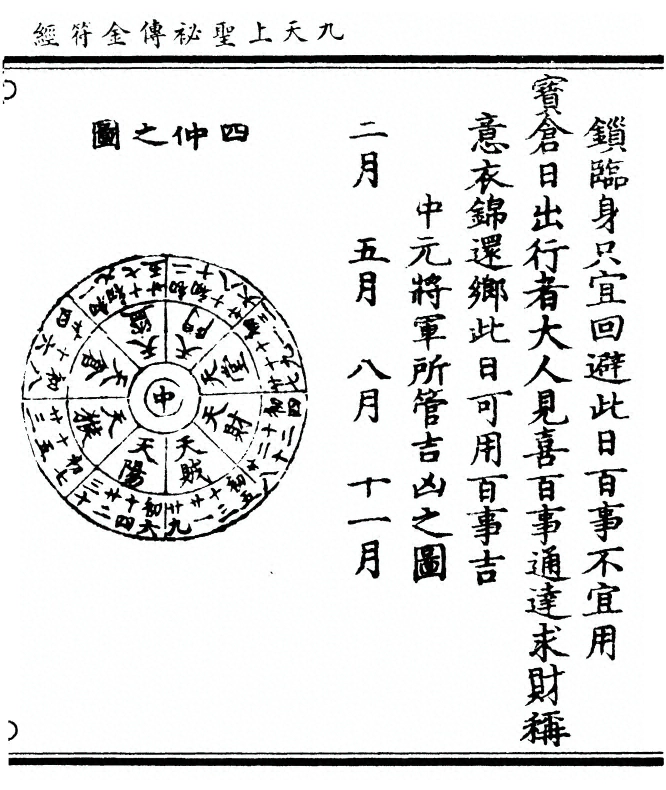 九天上聖祕傳金符經
鎖臨身只宜回避此日百事不宜用
寶倉日出行者大人見喜百事通達求財稱
意衣錦還鄉此日可用百事吉
中元將軍所管吉凶之圖
二月 五月 八月 十一月
四仲之圖
中
天盜
天門
天堂
天財
天賊
天陽
天
天倉